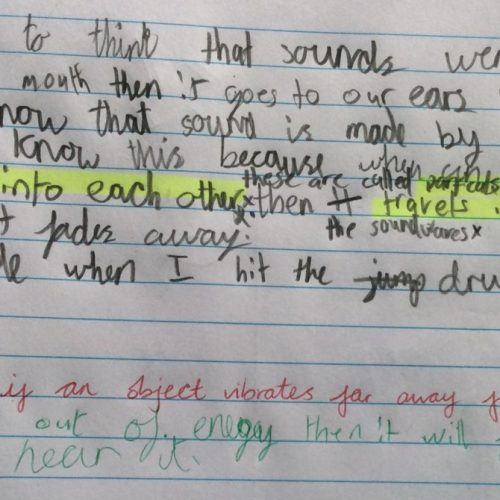 to think that sounds wer
mouth then it goes to our ears
now that sound is made by
know this because when
these are called
into each other then it travels
the soundwaves
t fades away.
when I hit the jump dru
if an object vibrates far away f
out of energy then it will
hear it.